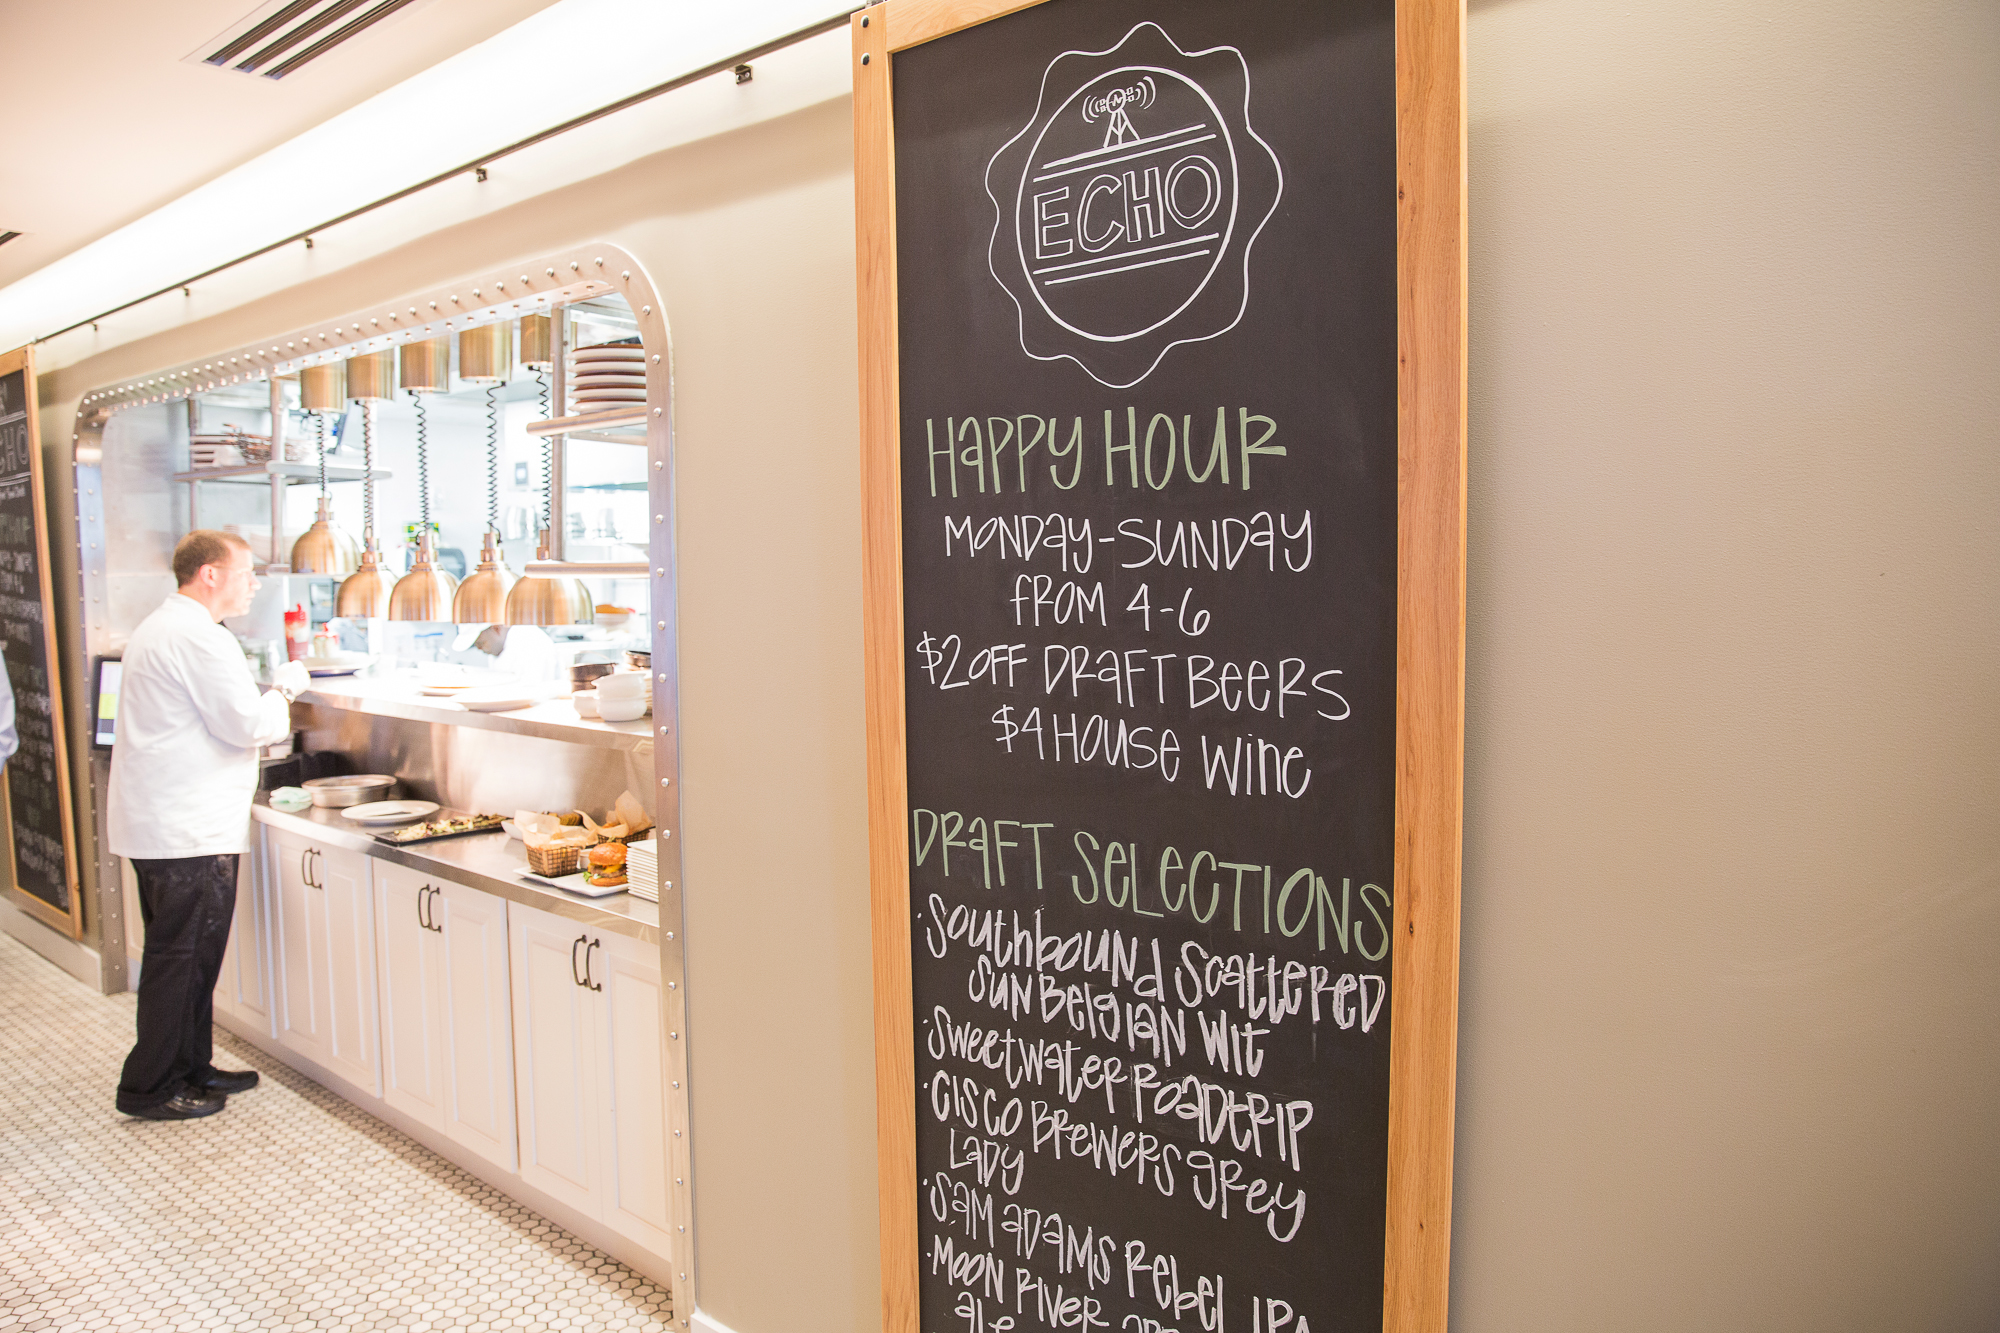 ECHO
HAPPY HOUR
MONDAY-SUNDAY
FROM 4-6
$2 OFF DRAFT BEERS
$4 HOUSE WINE
DRAFT SELECTIONS
·SOUTHBOUND SCATTERED
SUN BELGIAN WIT
·SWEETWATER ROADTRIP
·CISCO BREWERS GREY
LADY
·SAM ADAMS REBEL IPA
·MOON RIVER
ALE
CHO